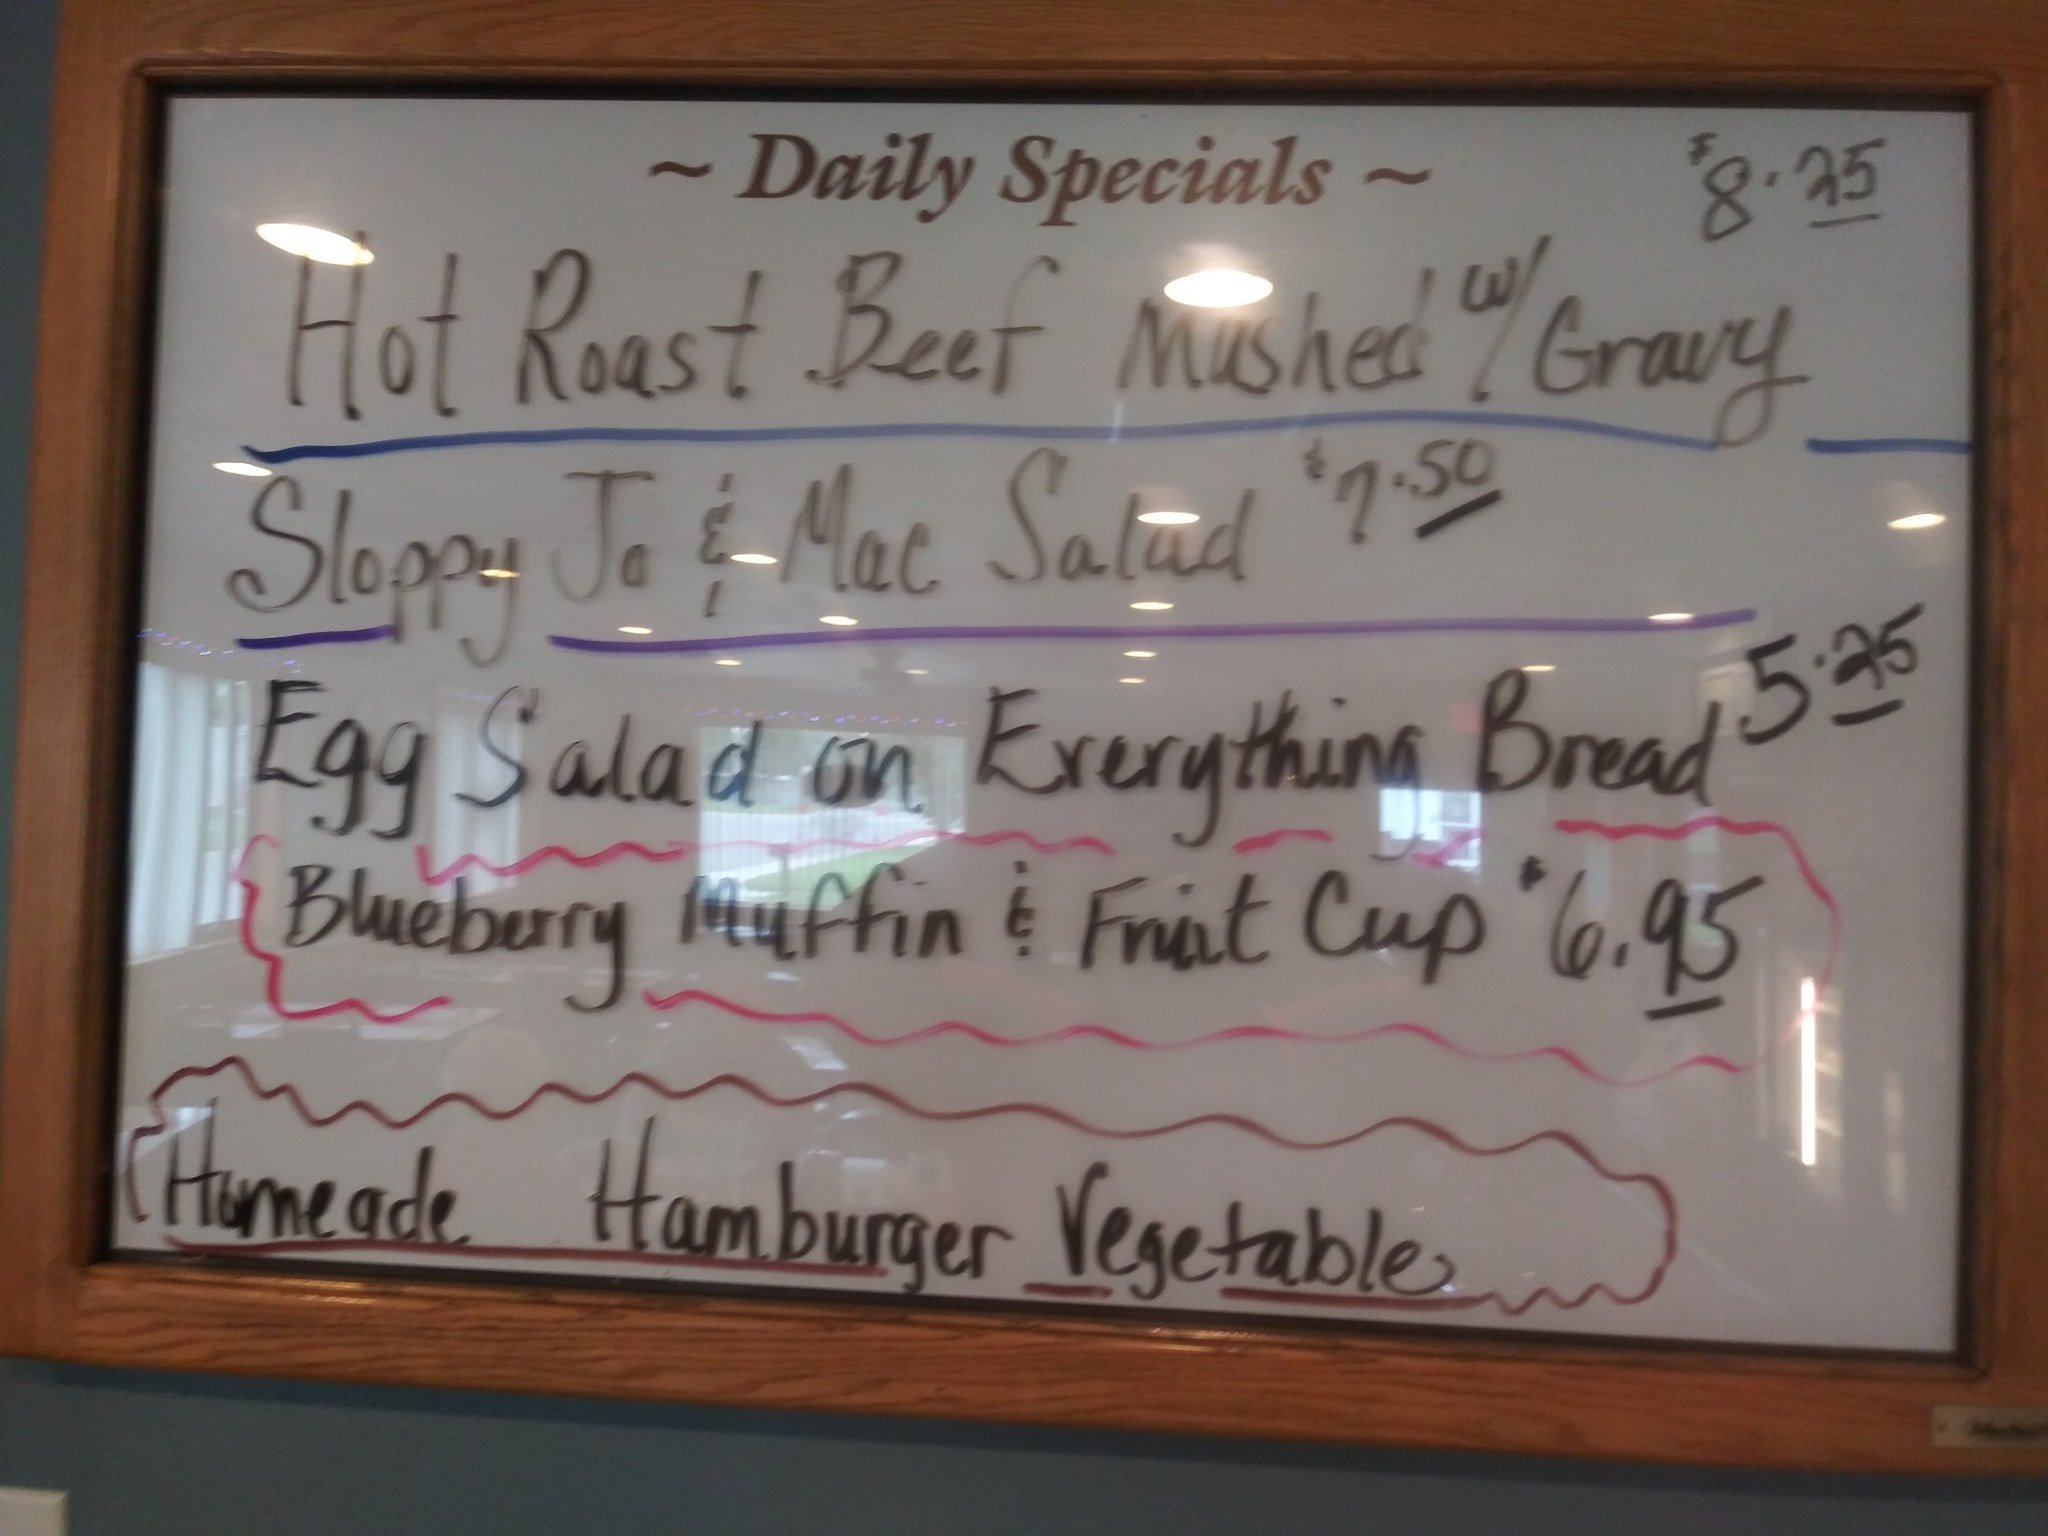 ~ Daily Specials ~ $8.25
Hot Roast Beef Mashed w/ Gravy
Sloppy Jo & Mac Salad $7.50
Egg Salad on Everything Bread 5.25
Blueberry Muffin & Fruit Cup $6.95
Homeade Hamburger Vegetable